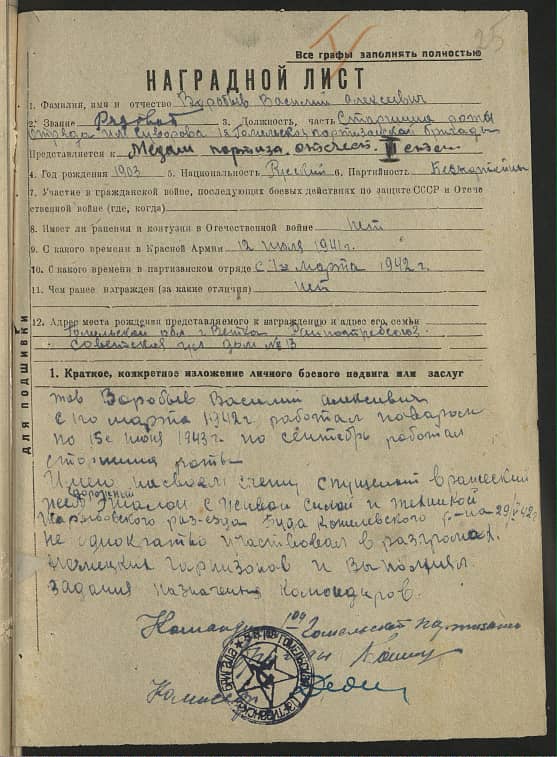 25
Все графы заполнять полностью
НАГРАДНОЙ ЛИСТ
1. Фамилия, имя и отчество Воробьёв Василий Алексеевич
2. Звание Рядовой 3. Должность, часть Старшина роты
отряда им. Суворова 1й Гомельской партизанской бригады
Представляется к Медали партиза. отечест. II степ
4. Год рождения 1903 5. Национальность Русский 6. Партийность Безпартейный
7. Участие в гражданской войне, последующих боевых действиях по защите СССР и Отече
ственной войне (где, когда)
8. Имеет ли ранения и контузии в Отечественной войне Нет
9. С какого времени в Красной Армии 12 июля 1941г.
10. С какого времени в партизанском отряде с 1го марта 1942г.
11. Чем ранее награжден (за какие отличия) Нет
12. Адрес места рождения представляемого к награждению и адрес его семьи
Гомельской обл г. Ветка
Советская ул дом № 13
ДЛЯ ПОДШИВКИ
1. Краткое, конкретное изложение личного боевого подвига или заслуг
тов Воробьёв Василий Алексеевич
с 1го марта 1942г. работал поваром
по 15е июня 1943г. по сентябрь работал
старшина роты
Имеет на своём счету спущеный вражеский
жел дорожный эшалон с живой силой и техникой
раз-езда Буда Кошелевского на 29/
Не однократно участвовал в разгромах
немецких гарнизонов и выполнял
задания командиров.
Командир 1ой Гомельской партизан
бригады
Комиссар